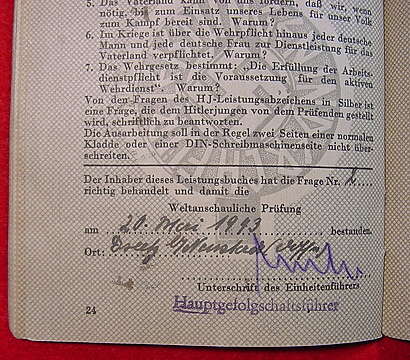 5. Das Vaterland kann von uns fordern, daß wir, wenn
nötig, bis zum Einsatz unseres Lebens für unser Volk
zum Kampf bereit sind. Warum?
6. Im Kriege ist über die Wehrpflicht hinaus jeder deutsche
Mann und jede deutsche Frau zur Dienstleistung für das
Vaterland verpflichtet. Warum?
7. Das Wehrgesetz bestimmt: „Die Erfüllung der Arbeits-
dienstpflicht ist die Voraussetzung für den aktiven
Wehrdienst“. Warum?
Von den Fragen des HJ-Leistungsabzeichens in Silber ist
eine Frage, die dem Hitlerjungen von dem Prüfenden gestellt
wird, schriftlich zu beantworten.
Die Ausarbeitung soll in der Regel zwei Seiten einer normalen
Kladde oder einer DIN-Schreibmaschinenseite nicht über-
schreiten.
Der Inhaber dieses Leistungsbuches hat die Frage Nr.
richtig behandelt und damit die
Weltanschauliche Prüfung
am 20. Mai 1943 bestanden.
Ort:
Unterschrift des Einheitenführers
Hauptgefolgschaftsführer
24